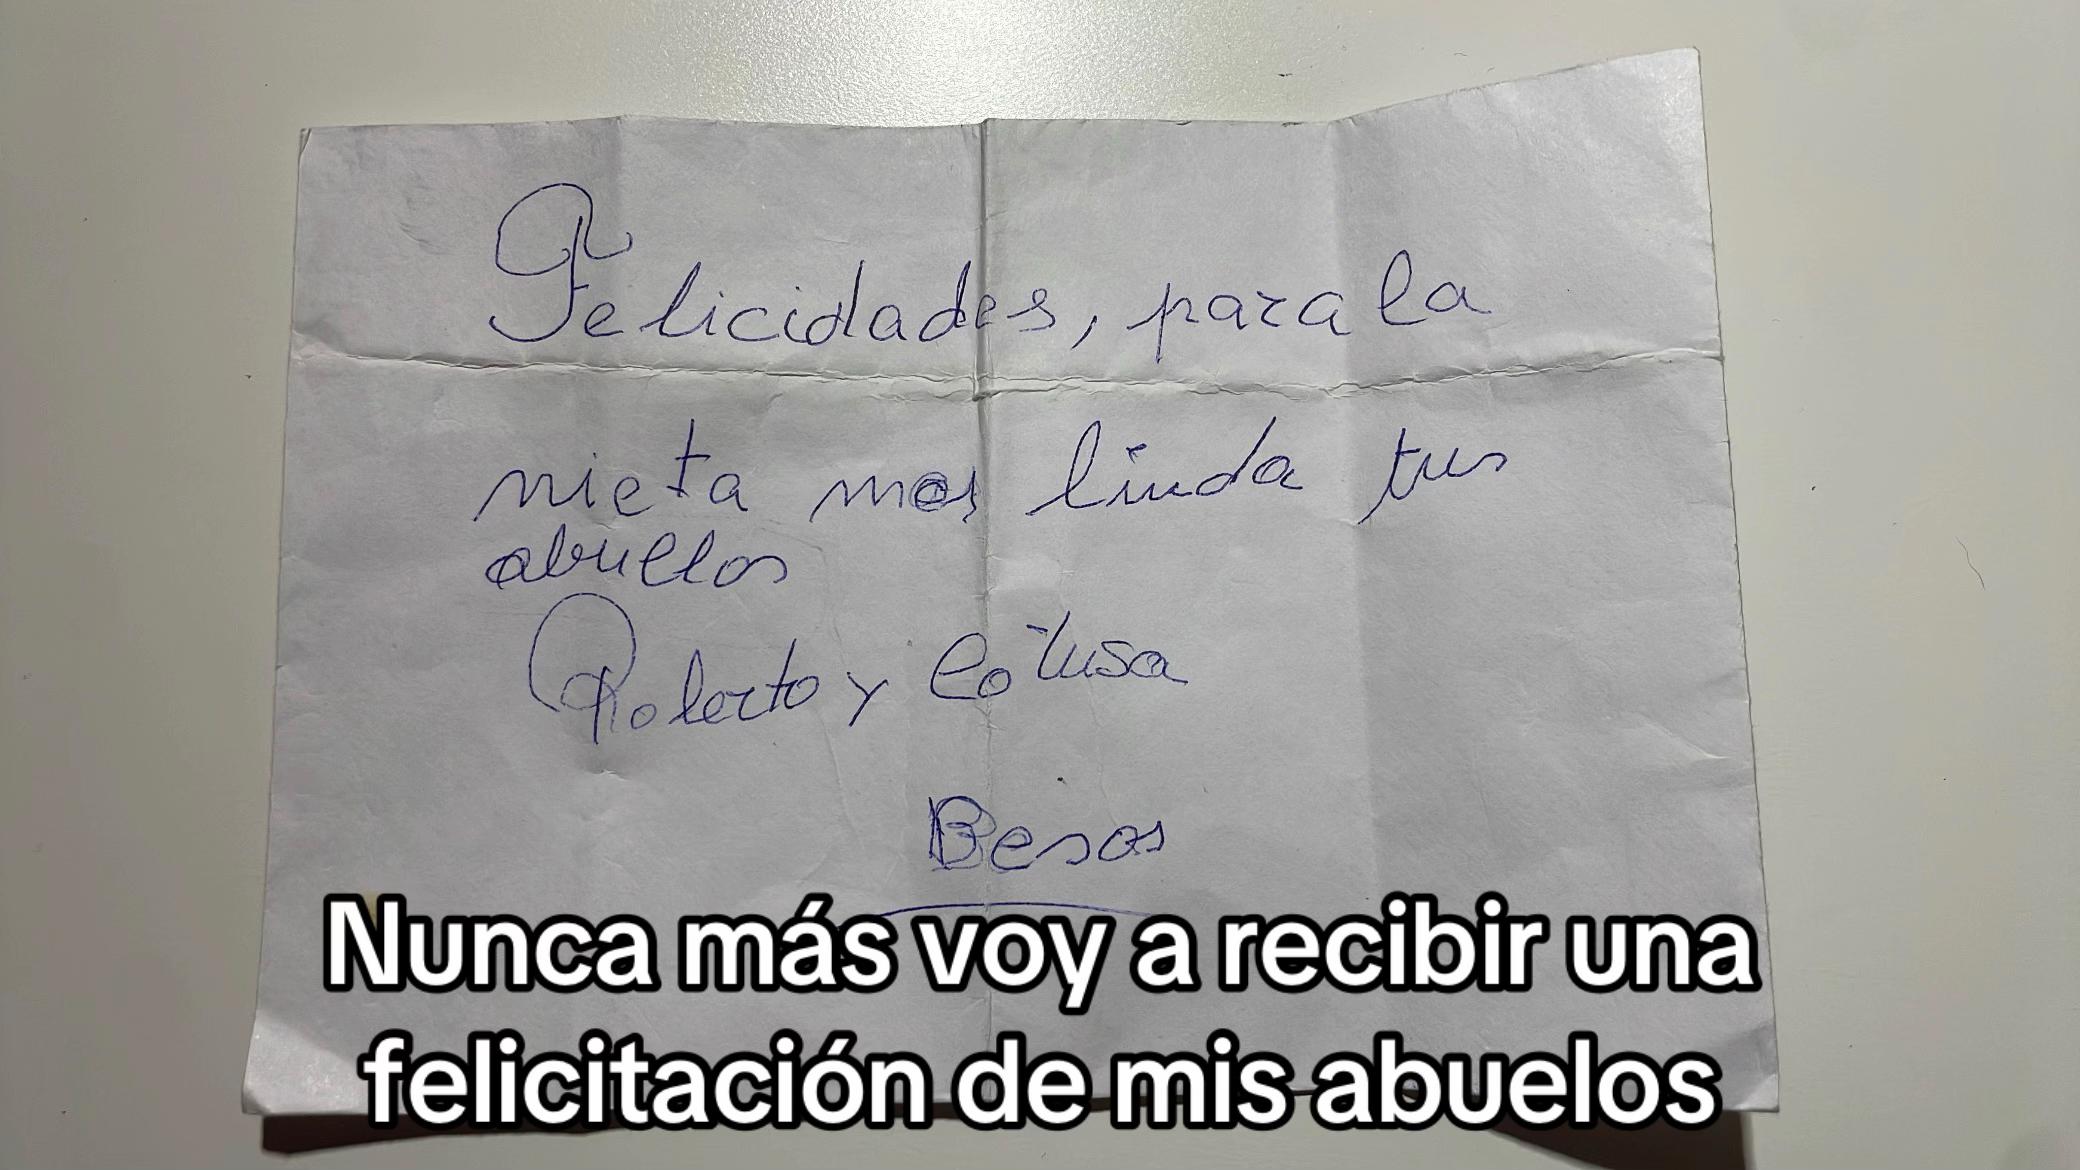 Felicidades, para la
nieta mas linda tus
abuelos
Roberto y
Besos
Nunca más voy a recibir una
felicitación de mis abuelos